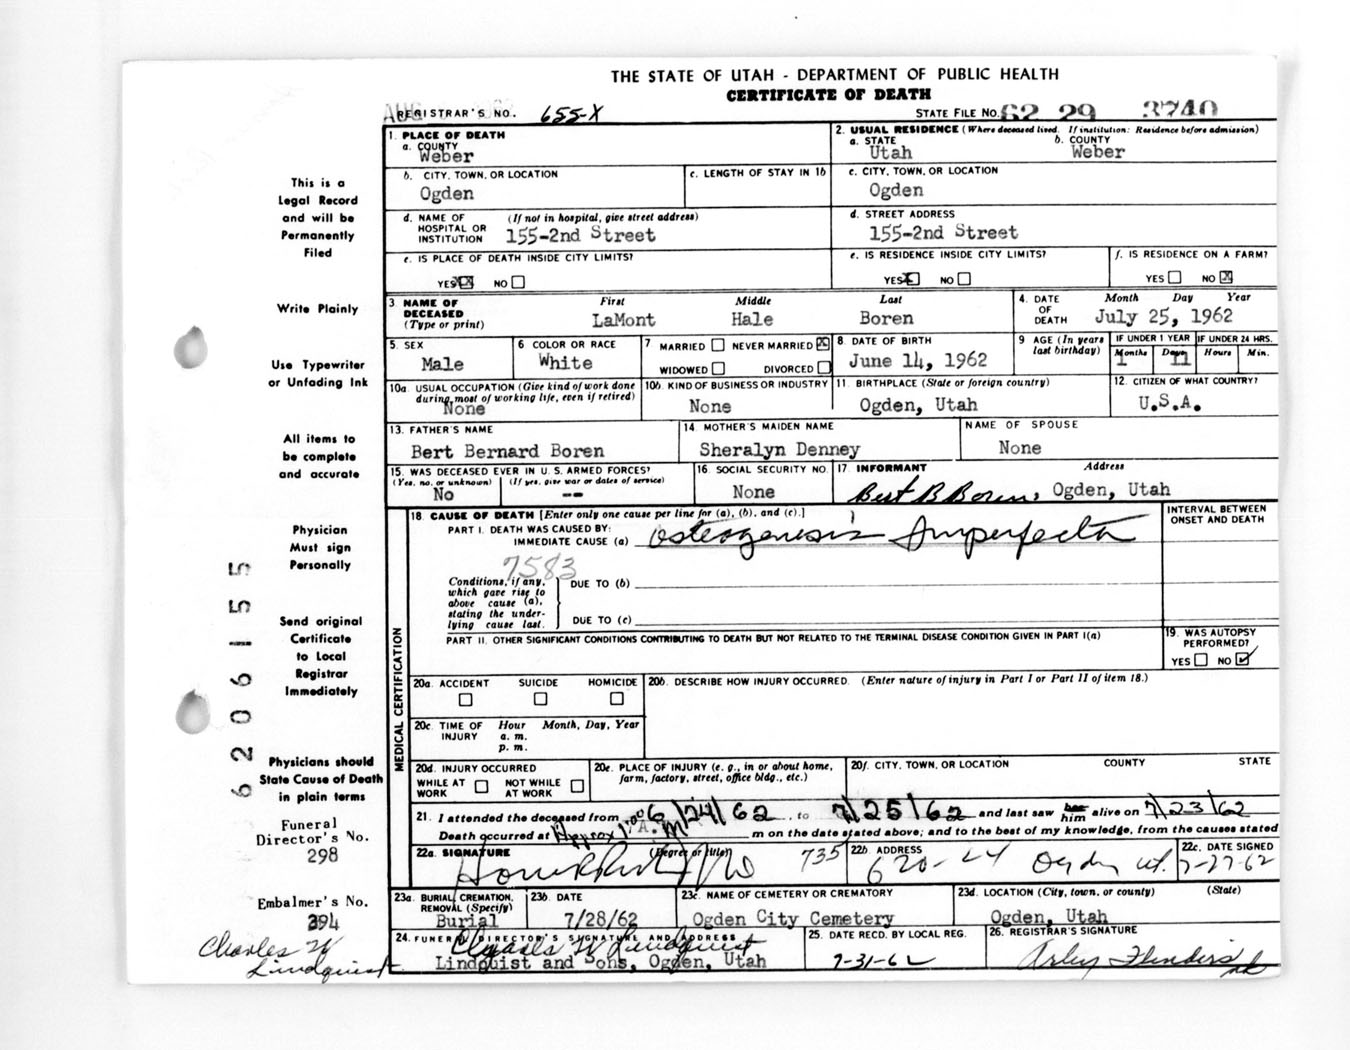 THE STATE OF UTAH - DEPARTMENT OF PUBLIC HEALTH
CERTIFICATE OF DEATH
AUG
REGISTRAR'S NO. 655-X
STATE FILE NO. 62 29 3740
1. PLACE OF DEATH
a. COUNTY
Weber
2. USUAL RESIDENCE (Where deceased lived. If institution: Residence before admission)
a. STATE b. COUNTY
Utah Weber
b. CITY, TOWN, OR LOCATION
Ogden
c. LENGTH OF STAY IN 1b
c. CITY, TOWN, OR LOCATION
Ogden
d. NAME OF HOSPITAL OR INSTITUTION (If not in hospital, give street address)
155-2nd Street
d. STREET ADDRESS
155-2nd Street
e. IS PLACE OF DEATH INSIDE CITY LIMITS?
YES NO
e. IS RESIDENCE INSIDE CITY LIMITS?
YES NO
f. IS RESIDENCE ON A FARM?
YES NO
3. NAME OF DECEASED (Type or print)
First Middle Last
LaMont Hale Boren
4. DATE OF DEATH
Month Day Year
July 25, 1962
5. SEX
Male
6 COLOR OR RACE
White
7 MARRIED NEVER MARRIED
WIDOWED DIVORCED
8. DATE OF BIRTH
June 14, 1962
9 AGE (In years last birthday)
IF UNDER 1 YEAR IF UNDER 24 HRS.
Months Days Hours Min.
1 11
10a. USUAL OCCUPATION (Give kind of work done during most of working life, even if retired)
None
10b. KIND OF BUSINESS OR INDUSTRY
None
11. BIRTHPLACE (State or foreign country)
Ogden, Utah
12. CITIZEN OF WHAT COUNTRY?
U.S.A.
13. FATHER'S NAME
Bert Bernard Boren
14. MOTHER'S MAIDEN NAME
Sheralyn Denney
NAME OF SPOUSE
None
15. WAS DECEASED EVER IN U. S. ARMED FORCES?
(Yes, no, or unknown) (If yes, give war or dates of service)
No --
16. SOCIAL SECURITY NO.
None
17. INFORMANT Address
Bert B Boren, Ogden, Utah
18. CAUSE OF DEATH [Enter only one cause per line for (a), (b), and (c).]
INTERVAL BETWEEN ONSET AND DEATH
PART I. DEATH WAS CAUSED BY:
IMMEDIATE CAUSE (a) Osteogenesis Imperfecta
7583
Conditions, if any, which gave rise to above cause (a), stating the underlying cause last.
DUE TO (b)
DUE TO (c)
PART II. OTHER SIGNIFICANT CONDITIONS CONTRIBUTING TO DEATH BUT NOT RELATED TO THE TERMINAL DISEASE CONDITION GIVEN IN PART I(a)
19. WAS AUTOPSY PERFORMED?
YES NO
MEDICAL CERTIFICATION
20a. ACCIDENT SUICIDE HOMICIDE
20b. DESCRIBE HOW INJURY OCCURRED. (Enter nature of injury in Part I or Part II of item 18.)
20c. TIME OF INJURY Hour Month, Day, Year
a. m.
p. m.
20d. INJURY OCCURRED
WHILE AT WORK NOT WHILE AT WORK
20e. PLACE OF INJURY (e. g., in or about home, farm, factory, street, office bldg., etc.)
20f. CITY, TOWN, OR LOCATION COUNTY STATE
21. I attended the deceased from 6/24/62, to 7/25/62 and last saw her him alive on 7/23/62
Death occurred at Approx A.M m on the date stated above; and to the best of my knowledge, from the causes stated
22a. SIGNATURE (Degree or title)
735
22b. ADDRESS
620-24 Ogden Ut.
22c. DATE SIGNED
7-27-62
23a. BURIAL, CREMATION, REMOVAL (Specify)
Burial
23b. DATE
7/28/62
23c. NAME OF CEMETERY OR CREMATORY
Ogden City Cemetery
23d. LOCATION (City, town, or county) (State)
Ogden, Utah
24. FUNERAL DIRECTOR'S SIGNATURE AND ADDRESS
Charles W Lindquist
Lindquist and Sons, Ogden, Utah
25. DATE RECD. BY LOCAL REG.
7-31-62
26. REGISTRAR'S SIGNATURE
Arley Flinders
This is a
Legal Record
and will be
Permanently
Filed
Write Plainly
Use Typewriter
or Unfading Ink
All items to
be complete
and accurate
Physician
Must sign
Personally
Send original
Certificate
to Local
Registrar
Immediately
Physicians should
State Cause of Death
in plain terms
Funeral
Director's No.
298
Embalmer's No.
394
Charles W
Lindquist
6206155